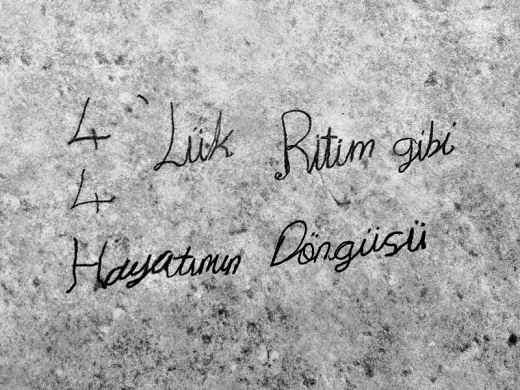 4 'Lük Ritim gibi
4
Hayatımın Döngüsü